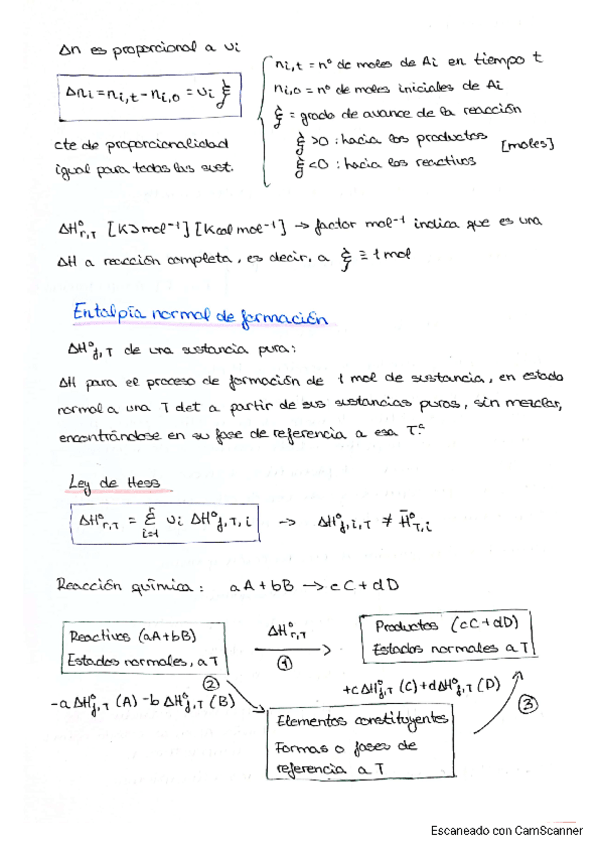 Δn es proporcional a υi
Δni = ni,t - ni,o = υi ξ
cte de proporcionalidad
igual para todas las sust.
ni,t = nº de moles de Ai en tiempo t
ni,o = nº de moles iniciales de Ai
ξ = grado de avance de la reacción
ξ >0 : hacia los productos
ξ <0 : hacia los reactivos
[moles]
ΔHºr,T [KJ mol⁻¹] [Kcal mol⁻¹] → factor mol⁻¹ indica que es una
ΔH a reacción completa, es decir, a ξ ≡ 1 mol
Entalpía normal de formación
ΔHºf,T de una sustancia pura:
ΔH para el proceso de formación de 1 mol de sustancia, en estado
normal a una T det a partir de sus sustancias puras, sin mezclar,
encontrándose en su fase de referencia a esa Tª
Ley de Hess
ΔHºr,T = Σ i=1 υi ΔHºf,T,i → ΔHºf,i,T ≠ H̄ºT,i
Reacción química: aA + bB → cC + dD
Reactivos (aA+bB)
Estados normales, a T
ΔHºr,T
①
Productos (cC+dD)
Estados normales a T
②
-a ΔHºf,T (A) -b ΔHºf,T (B)
+cΔHºf,T (C)+dΔHºf,T (D)
③
Elementos constituyentes
Formas o fases de
referencia a T
Escaneado con CamScanner